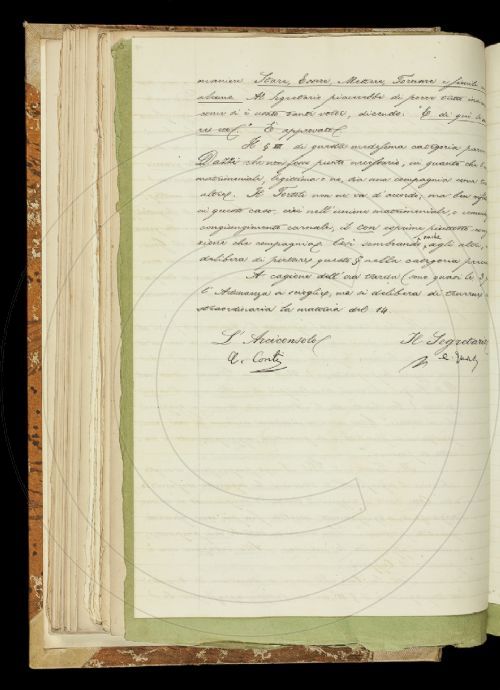 maniere Stare, Essere, Mettere, Tornare e simili
alcune. Al Segretario piacerebbe di porre tutta
come si è usato tante volte, dicendo: "E di qui
ec." È approvato.
Il § III di questa medesima categoria
Dazzi che non fosse punto necessario, in quanto che
matrimoniale, legittima o no, sia una compagnia come
altre. Il Tortoli non ne va d'accordo, ma
in questo caso, cioè nell'unione matrimoniale, o
congiungimento carnale, il con esprime piuttosto
zione che compagnia. Così sembrando anche agli altri,
delibera di portare questo § nella categoria
A cagione dell'ora tarda (sono quasi le 3)
l'Adunanza si scioglie, ma si delibera di
straordinaria la mattina del 14.
L'Arciconsolo Il Segretario
A. Conti